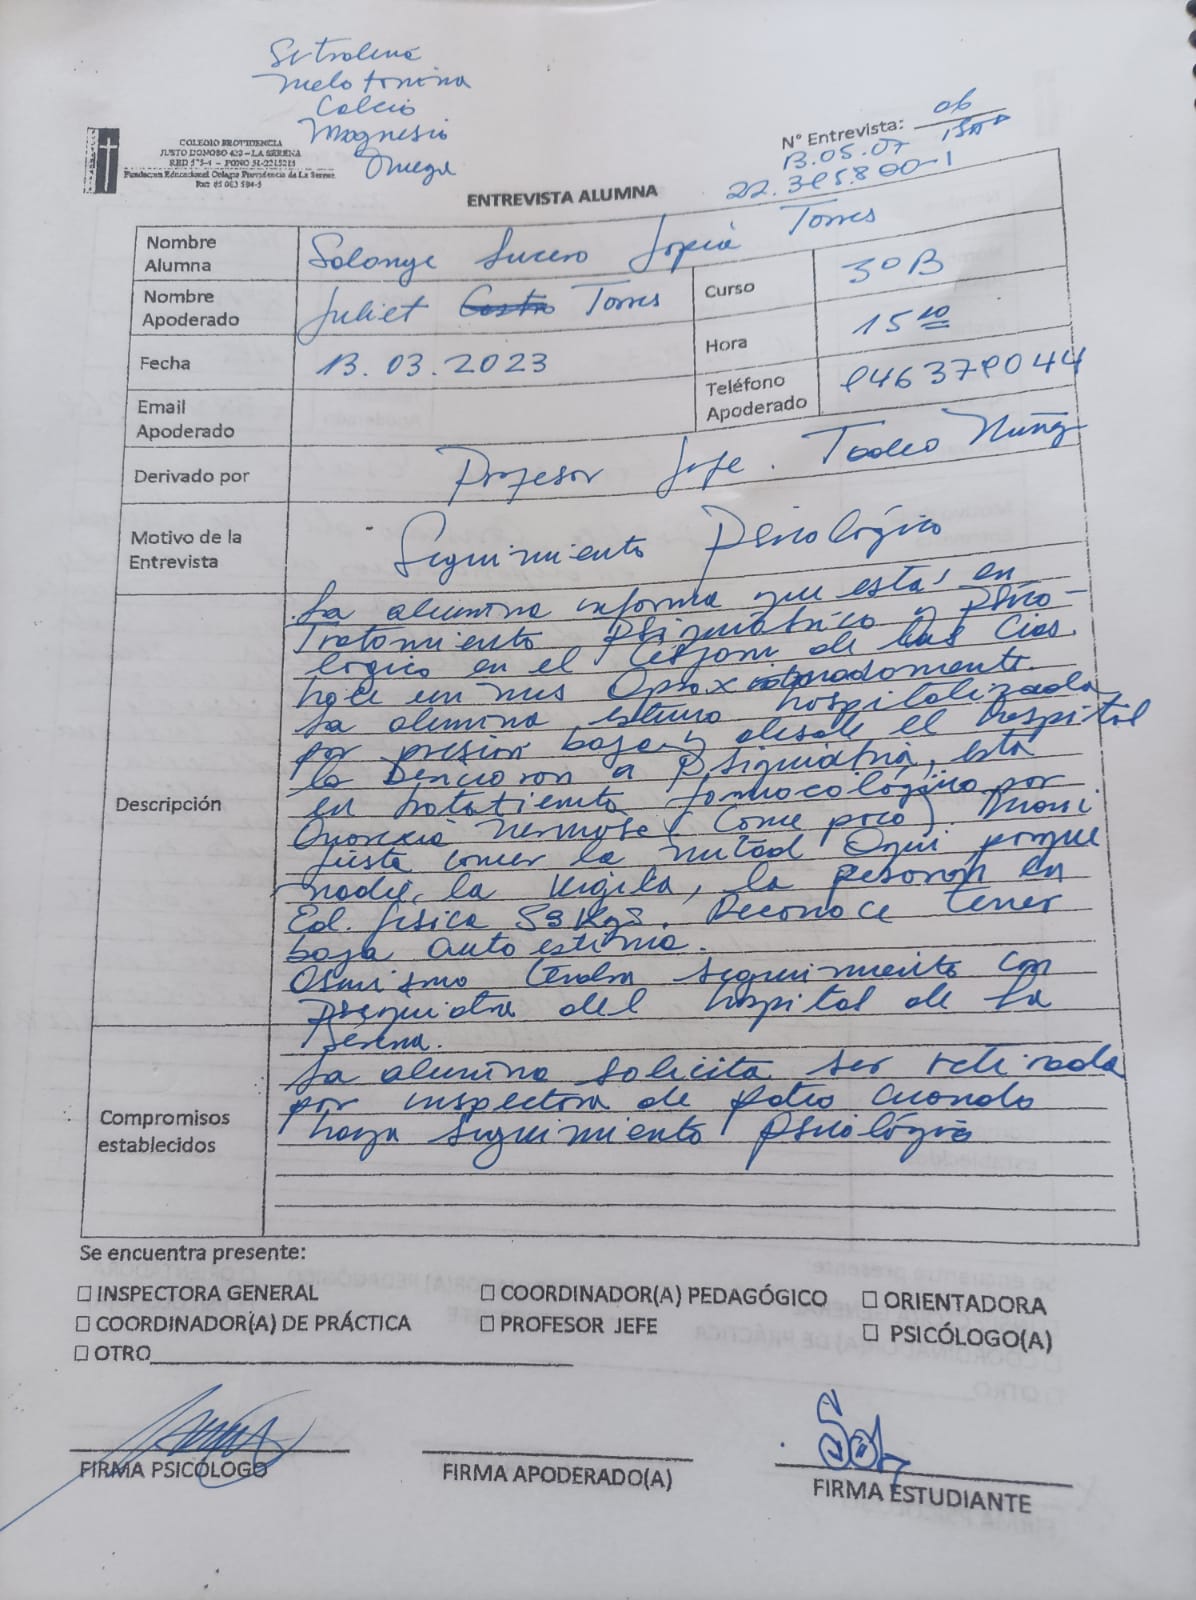 Setralina
Melotonina
Calcio
Magnesio
Omega
COLEGIO PROVIDENCIA
JUSTO DONOSO 420 – LA SERENA
RBD 575-4 – FONO 51-2215215
Fundación Educacional Colegio Providencia de La Serena
N° Entrevista: 06
13.05.07
ENTREVISTA ALUMNA
Nombre Alumna
Solange Lucero Tapia Torres
Nombre Apoderado
Juliet Castro Torres
Curso
3°B
Fecha
13.03.2023
Hora
15 10
Email Apoderado
Teléfono Apoderado
946379044
Derivado por
Profesor Jefe. Tadeo Núñez
Motivo de la Entrevista
Seguimiento Psicológico
Descripción
La alumna informa que está en
Tratamiento Psiquiátrico y psico-
lógico en el Cesfam de Las Cías
hace un mes aproximadamente.
La alumna estuvo hospitalizada
por presión baja y desde el Hospital
la derivaron a Psiquiatría, está
en tratatiento farmocológico por
Anorexia nerviosa (come poco). Mani
fiesta comer la mitad Aquí porque
nadie la vigila, la pesaron en
Ed. física 53 Kgs. Reconoce tener
baja autoestima.
Asimismo tendrá seguimiento con
Psiquiatra del hospital de La
Serena.
Compromisos establecidos
La alumna solicita ser retirada
por inspectora de patio cuando
haya seguimiento psicológico
Se encuentra presente:
☐ INSPECTORA GENERAL ☐ COORDINADOR(A) PEDAGÓGICO ☐ ORIENTADORA
☐ COORDINADOR(A) DE PRÁCTICA ☐ PROFESOR JEFE ☐ PSICÓLOGO(A)
☐ OTRO
FIRMA PSICÓLOGO FIRMA APODERADO(A) FIRMA ESTUDIANTE